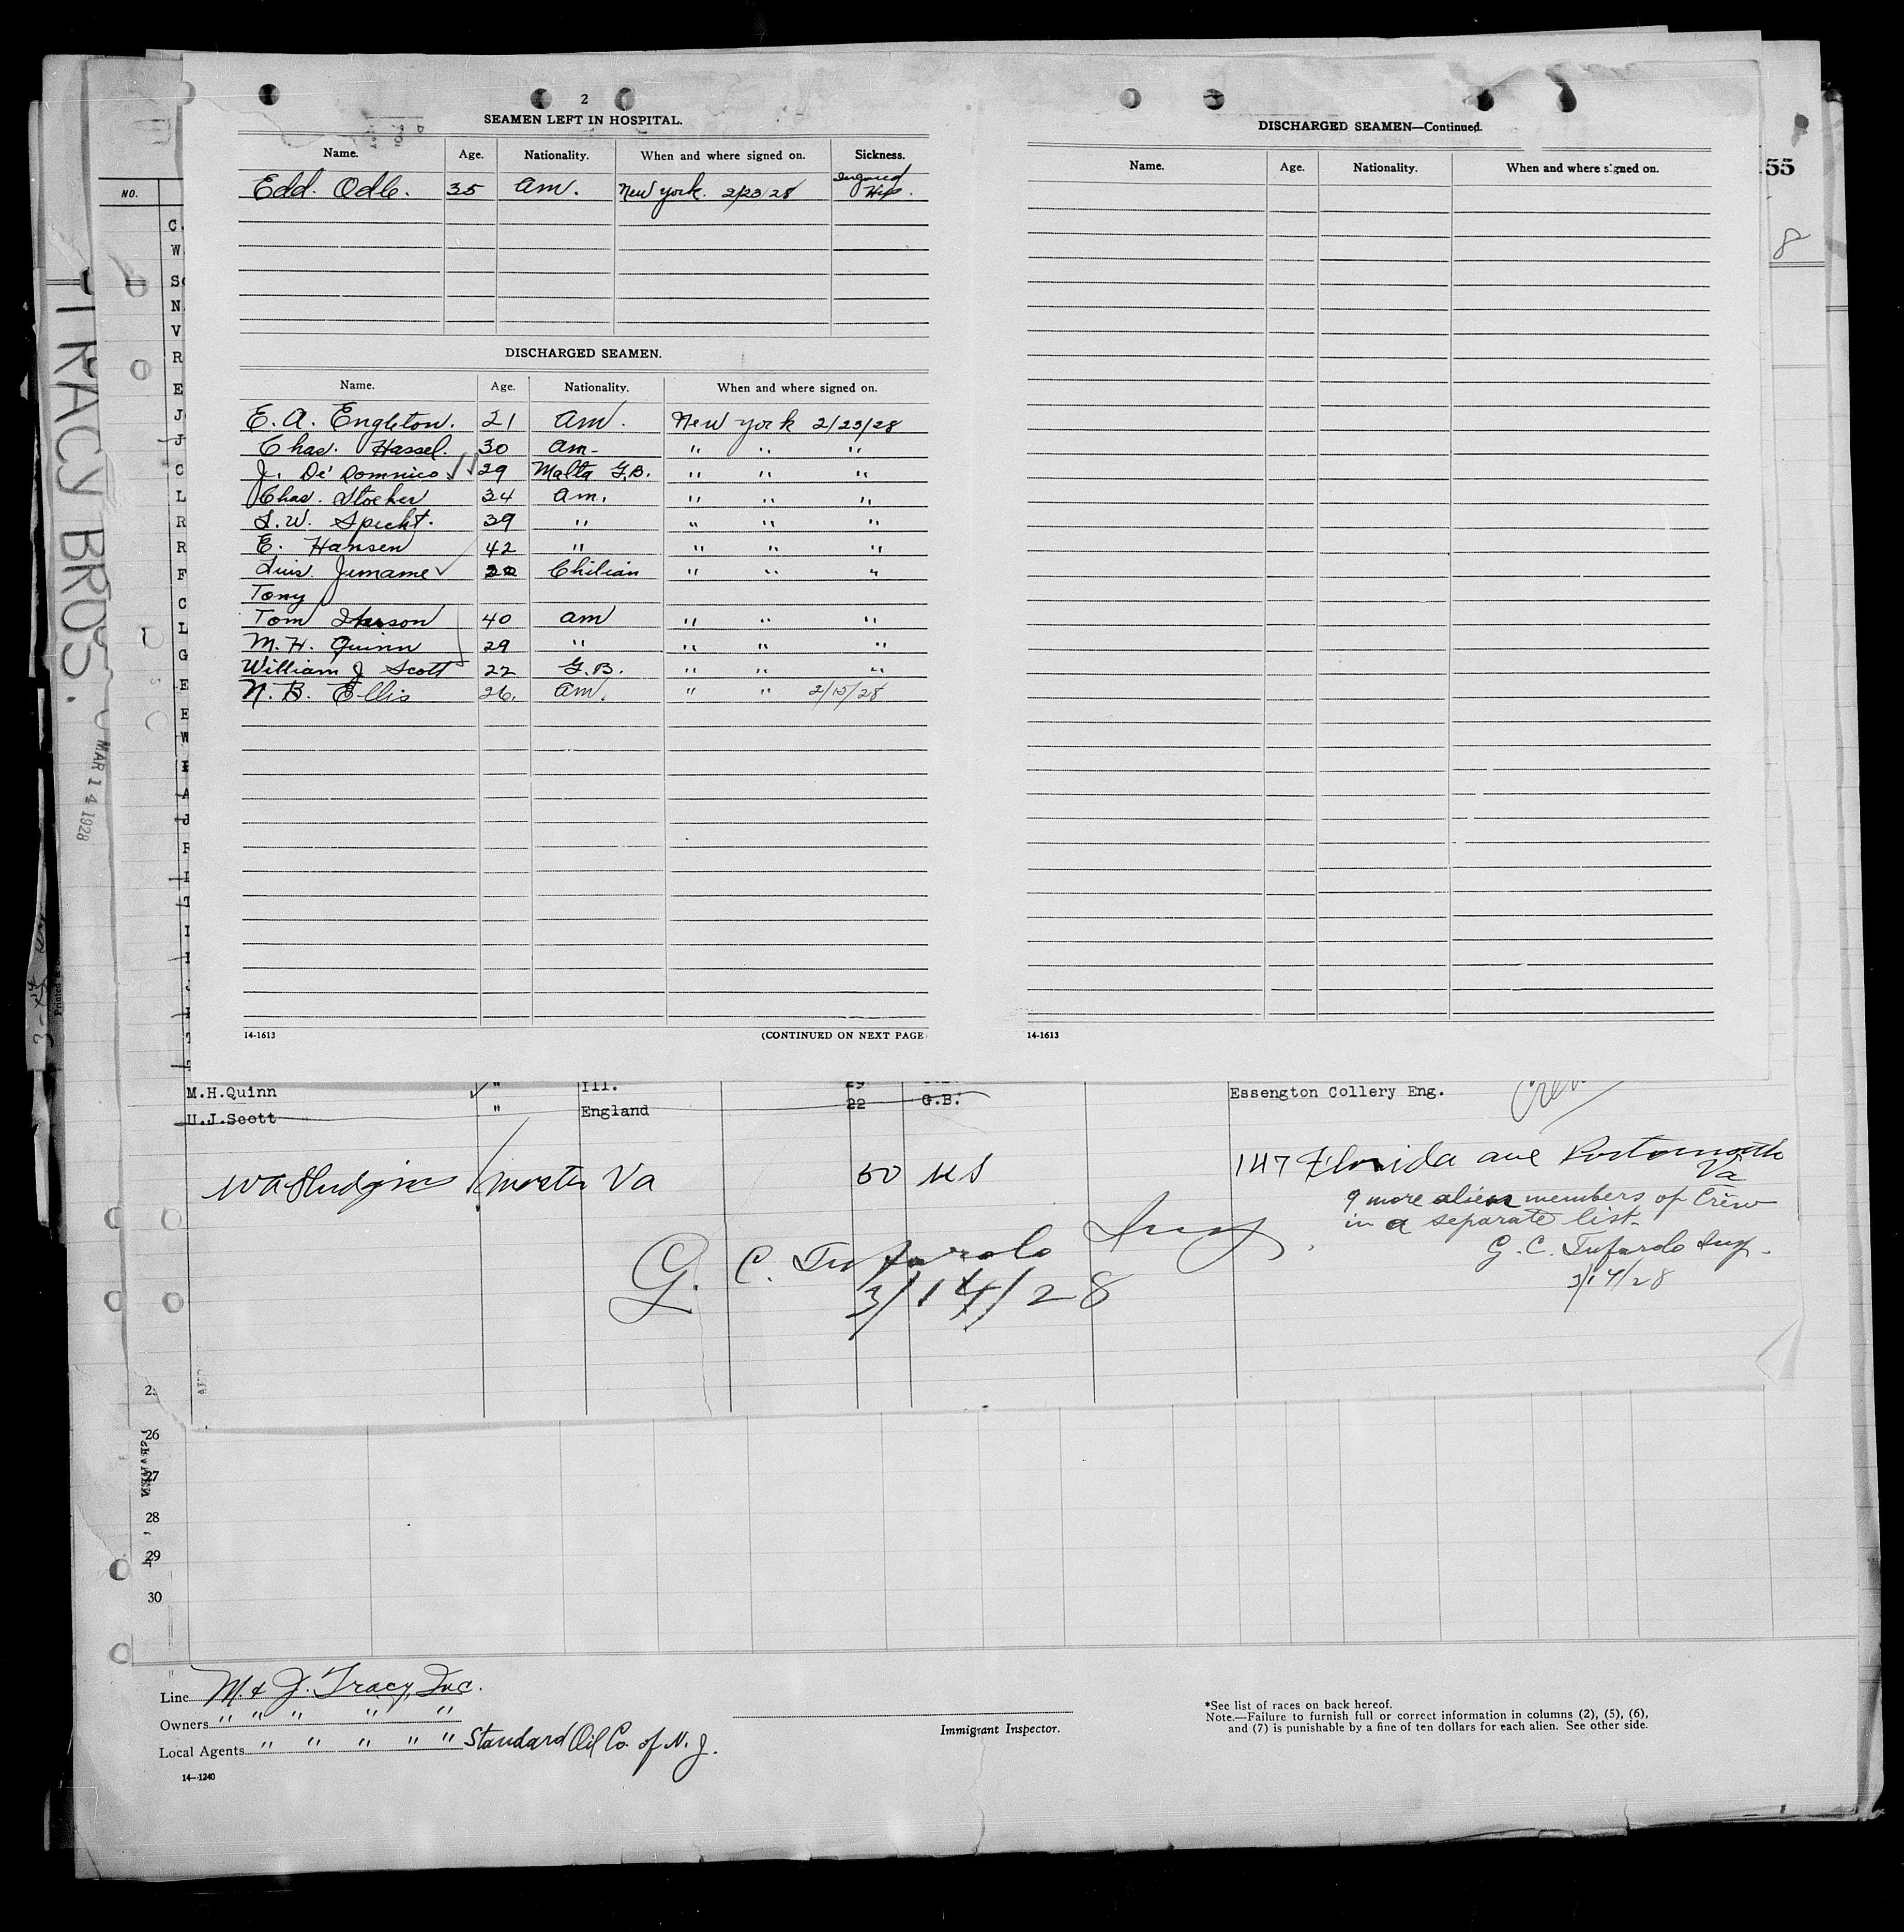 2
SEAMEN LEFT IN HOSPITAL.
Name. Age. Nationality. When and where signed on. Sickness.
Edd. Odle. 35 Am. New York. 2/23/28 Hip.
DISCHARGED SEAMEN.
Name. Age. Nationality. When and where signed on.
E. A. Engleton. 21 Am. New York 2/23/28
Chas. Hassel. 30 Am- " " "
J. De' Domnico 29 Malta G.B. " " "
Chas. Stocker 34 Am. " " "
S. W. Specht. 39 " " " "
E. Hansen 42 " " " "
Luis. Jemame Chilian " " "
Tony
Tom 40 Am " " "
M. H. Quinn 29 " " " "
William J Scott 22 G.B. " " "
N. B. Ellis 26. Am. " " 2/15/28
14-1613 (CONTINUED ON NEXT PAGE
DISCHARGED SEAMEN—Continued.
Name. Age. Nationality. When and where signed on.
14-1613
55
8
NO.
C
W
S
N
V
R
E
J
J
C
L
R
R
F
C
L
G
E
E
W
TRACY BROS.
MAR 14 1928
M.H.Quinn " Ill. 29
U.J.Scott " England 22 G.B. Essengton Collery Eng.
W A Hudgins Master Va 50 US 147 Florida ave Portsmouth
Va
9 more alien members of Crew
in a separate list-
G. C. Tufarolo Insp.
3/14/28
G. C. Tufarolo Insp.
3/14/28
26
27
28
29
30
Line M. & J. Tracy, Inc.
Owners " " " " "
Local Agents " " " " " Standard Oil Co. of N. J.
14—1240
Immigrant Inspector.
*See list of races on back hereof.
Note.—Failure to furnish full or correct information in columns (2), (5), (6),
and (7) is punishable by a fine of ten dollars for each alien. See other side.